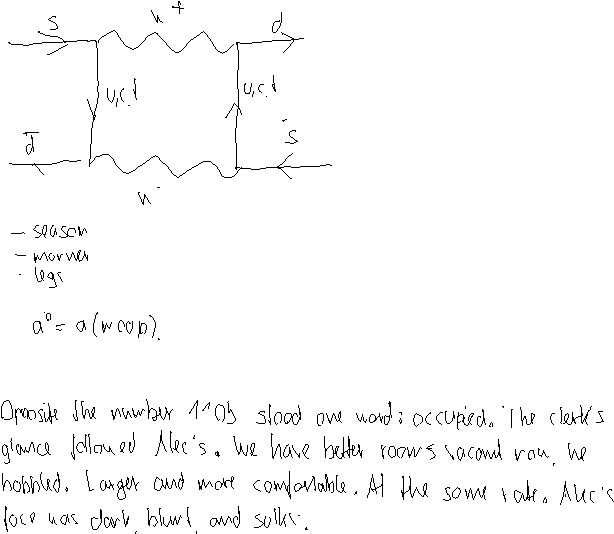 s W+ d
u,c,t u,c,t
d̄ s̄
W-
- season
- mariner
- legs
a° = a (mcop).
Opposite the number 1105 stood one word: occupied. The clerk's
glance followed Alec's. We have better rooms vacant now, he
bobbled. Larger and more comfortable. At the same rate. Alec's
face was dark, blunt, and sulky.